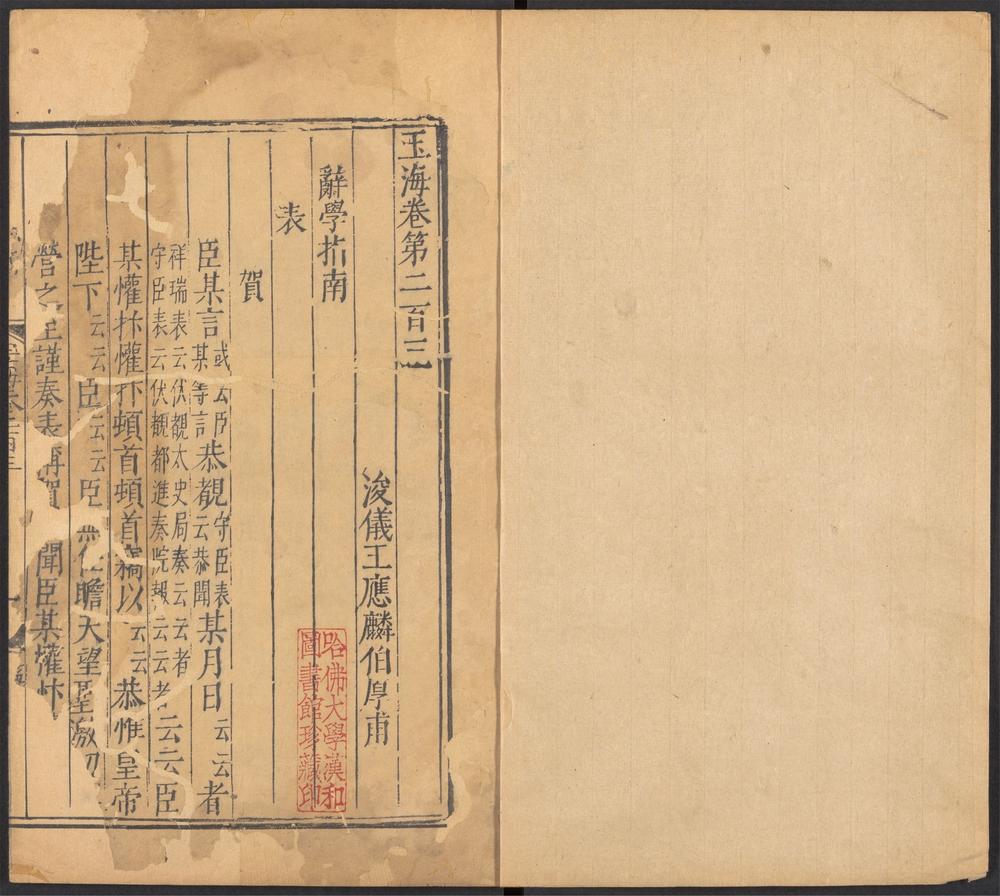 玉海卷第二百三
浚儀王應麟伯厚甫
辭學指南
表
賀
臣某言或云臣某等言恭覩守臣表云恭聞某月日云云者
祥瑞表云伏覩太史局奏云云者守臣表云伏覩都進奏院報云云者云云臣
某懽抃懽抃頓首頓首竊以云云恭惟皇帝
陛下云云臣云云臣無任瞻天望聖激切
營之至謹奏表稱賀聞臣某懽抃
哈佛大學漢和
圖書館珍藏印